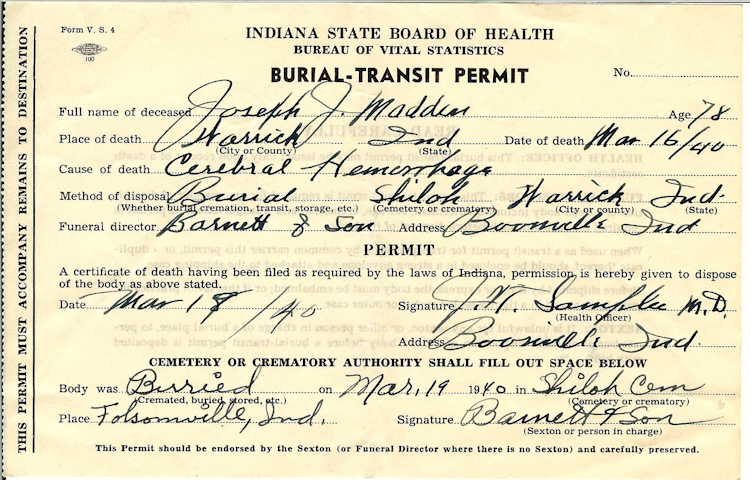 Form V. S. 4
100
INDIANA STATE BOARD OF HEALTH
BUREAU OF VITAL STATISTICS
BURIAL-TRANSIT PERMIT
No.
Full name of deceased Joseph J. Madden Age 78
Place of death Warrick Ind Date of death Mar 16/40
(City or County) (State)
Cause of death Cerebral Hemorrhage
Method of disposal Burial Shiloh Warrick Ind.
(Whether burial, cremation, transit, storage, etc.) (Cemetery or crematory) (City or county) (State)
Funeral director Barnett & Son Address Boonville Ind
PERMIT
A certificate of death having been filed as required by the laws of Indiana, permission is hereby given to dispose
of the body as above stated.
Date Mar 18/40 Signature Samples M.D.
(Health Officer)
Address Boonville Ind.
CEMETERY OR CREMATORY AUTHORITY SHALL FILL OUT SPACE BELOW
Body was Burried on Mar. 19 1940 in Shiloh Cem
(Cremated, buried, stored, etc.) (Cemetery or crematory)
Place Folsomville, Ind. Signature Barnett & Son
(Sexton or person in charge)
This Permit should be endorsed by the Sexton (or Funeral Director where there is no Sexton) and carefully preserved.
THIS PERMIT MUST ACCOMPANY REMAINS TO DESTINATION